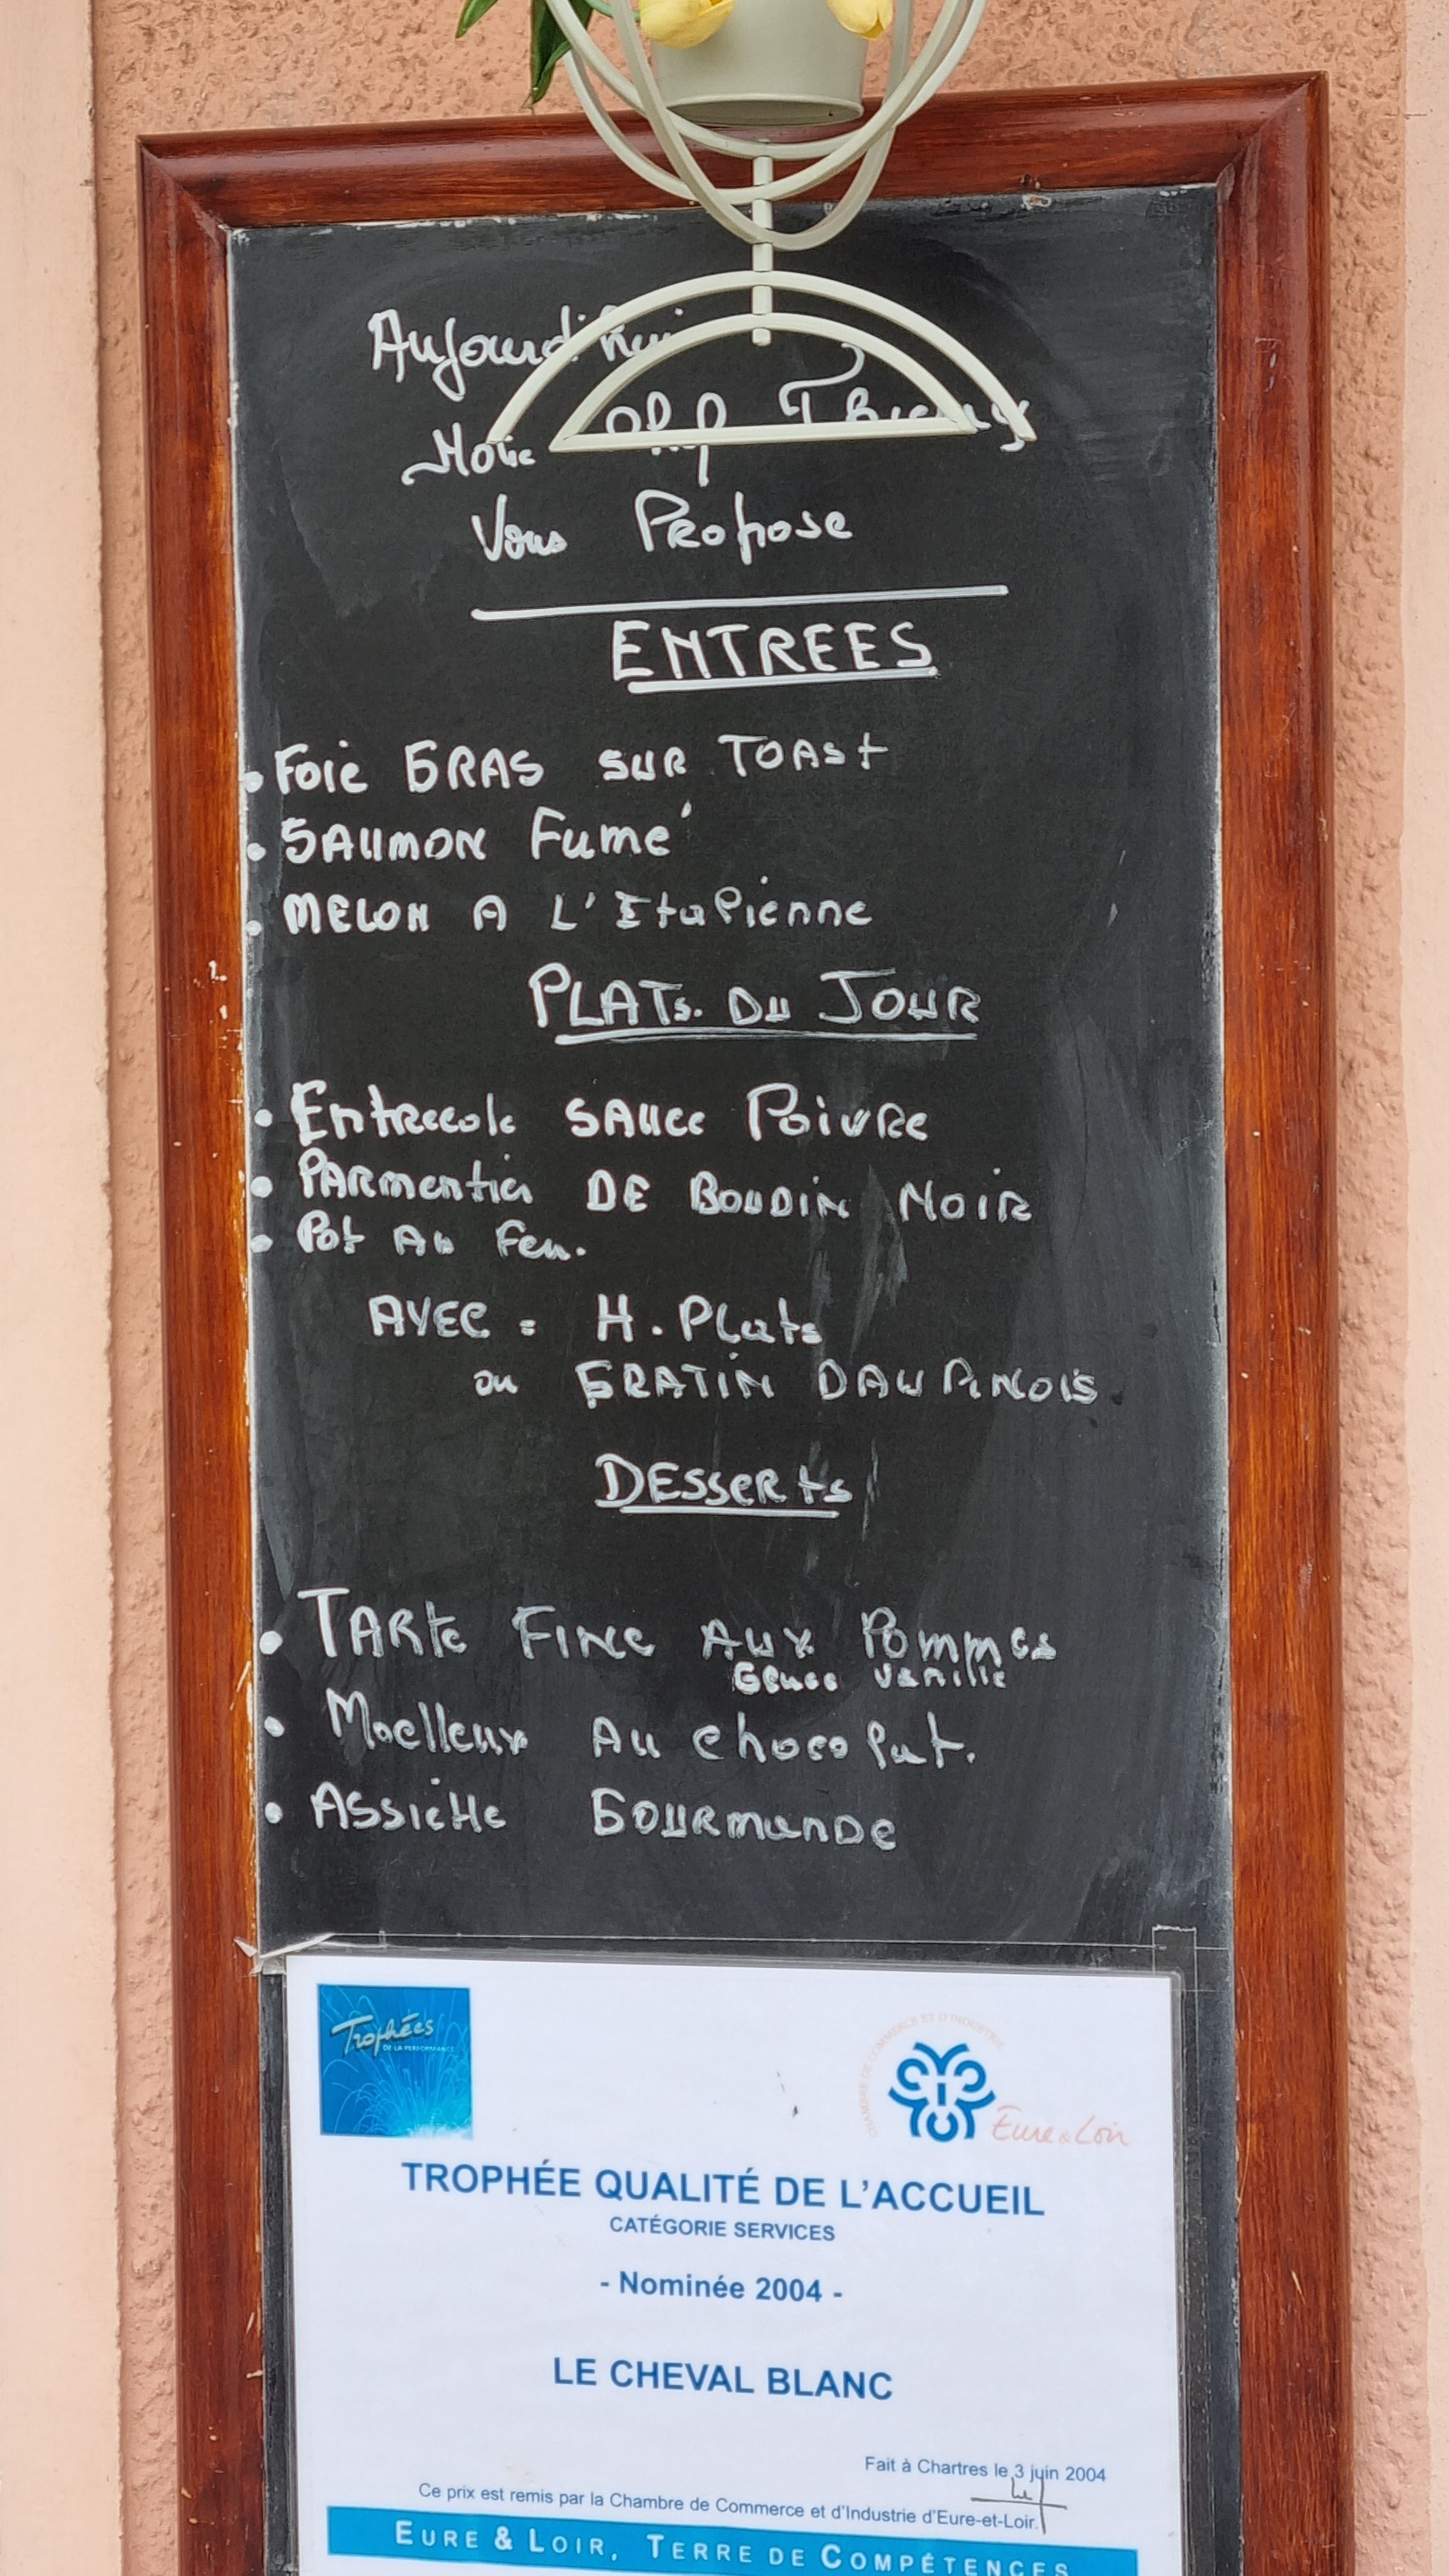 Aujourd'hui
Notre Chef Thierry
Vous Propose
ENTREES
• Foie GRAS SUR TOAST
• SAUMON Fumé
• MELON A L'Italienne
PLATS DU JOUR
• Entrecote SAUCE Poivre
• PARMentier DE BOUDIN NOIR
• Pot Au Feu.
AVEC = H. Plats
ou GRATIN DAUPHINOIS
DESSERTS
• TARTE FINE AUX POMMES
Glace vanille
• Moelleux Au chocolat.
• ASSIETTE GOURMANDE
Trophées
DE LA PERFORMANCE
CHAMBRE DE COMMERCE ET D'INDUSTRIE
Eure & Loir
TROPHÉE QUALITÉ DE L'ACCUEIL
CATÉGORIE SERVICES
- Nominée 2004 -
LE CHEVAL BLANC
Fait à Chartres le 3 juin 2004
Ce prix est remis par la Chambre de Commerce et d'Industrie d'Eure-et-Loir.
EURE & LOIR, TERRE DE COMPÉTENCES